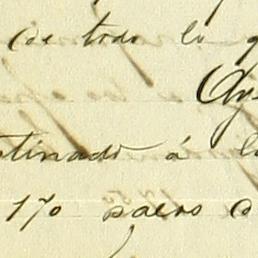 de todo lo q
Ag
tinado á l
170 sacos d